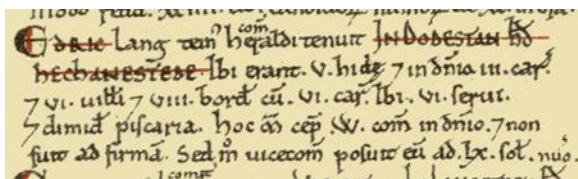 EDRIC Lang tein heraldi com tenuit IN DODESTAN HD
HECHANESTEDE. Ibi erant .v. hide. 7 in dnio .iii. car.
7 vi. uilli 7 viii. bord cu. vi. car. Ibi. vi. serui.
7 dimid piscaria. Hoc m cep .W. com in dnio. 7 non
fuit ad firma. Sed m uicecom posuit eu ad. lx. sol. nuo.